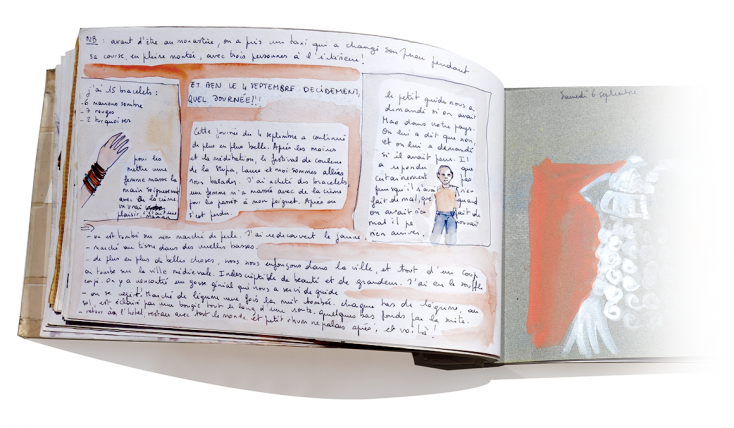 NB : avant d'être au monastère, on a pris un taxi qui a changé son pneu pendant
sa course, en pleine montée, avec trois personnes à l'intérieur.
j'ai 15 bracelets :
- 6 marrons sombre
- 7 rouges
- 2 turquoises
pour les
mettre une
femme masse la
main soigneusement
avec de la crème.
un vrai
plaisir
ET BEN LE 4 SEPTEMBRE DECIDEMENT,
QUEL JOURNÉE!!!
Cette journée du 4 septembre a continué
de plus en plus belle. Après les moines
et la méditation, le festival de couleurs
de la Stupa, Laure et moi sommes allées
nous balader. J'ai acheté des bracelets
une femme m'a massée avec de la crème
pour les passer à mon poignet. Après on
s'est perdu.
le petit guide nous a
demandé si on avait
Mao dans notre pays.
On lui a dit que non
et on lui a demandé
si il avait peur. Il
a répondu que
certainement pas
puisqu'il n'avait
fait de mal, que quand
on avait rien fait de
mal il pouvait
rien arriver.
- on est tombé sur un marché de perle. J'ai redécouvert le jaune
- marché au tissu dans des ruelles basses.
- de plus en plus de belles choses, nous nous enfonçons dans la ville, et tout d'un coup
on tombe sur la ville médiévale. Indescriptible de beauté et de grandeur. J'ai eu le souffle
coupé. On y a rencontré un gosse génial qui nous a servi de guide
- on se repert. Marché de légume une fois la nuit tombée. chaque tas de légume, au
sol, est éclairé par une bougie tout le long d'une route. quelques pas fonds par la suite.
- retour à l'hotel restau avec tout le monde et petit rhum népalais après, et voilà!
Samedi 6 septembre